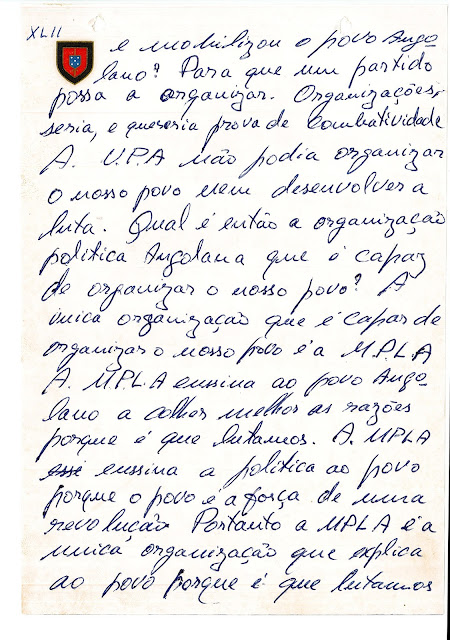 XLII
e mobilizou o povo Ango
lano? Para que um partido
possa a organizar. Organizações,
seria, e queseria prova de Combatividade
A. U.P.A não podia organizar
o nosso povo nem desenvolver a
luta. Qual é então a organização
politica Angolana que é capaz
de organizar o nosso povo? A
única organização que é capaz de
organizar o nosso povo é a M.P.L.A
A. M.P.L.A enssina ao povo Ango_
lano a olhar melhor as razões
porque é que lutamos. A. MPLA
enssina a politica ao povo
porque o povo é a força de uma
revolução Portanto a MPLA é a
unica, organização que explica
ao povo porque é que lutamos